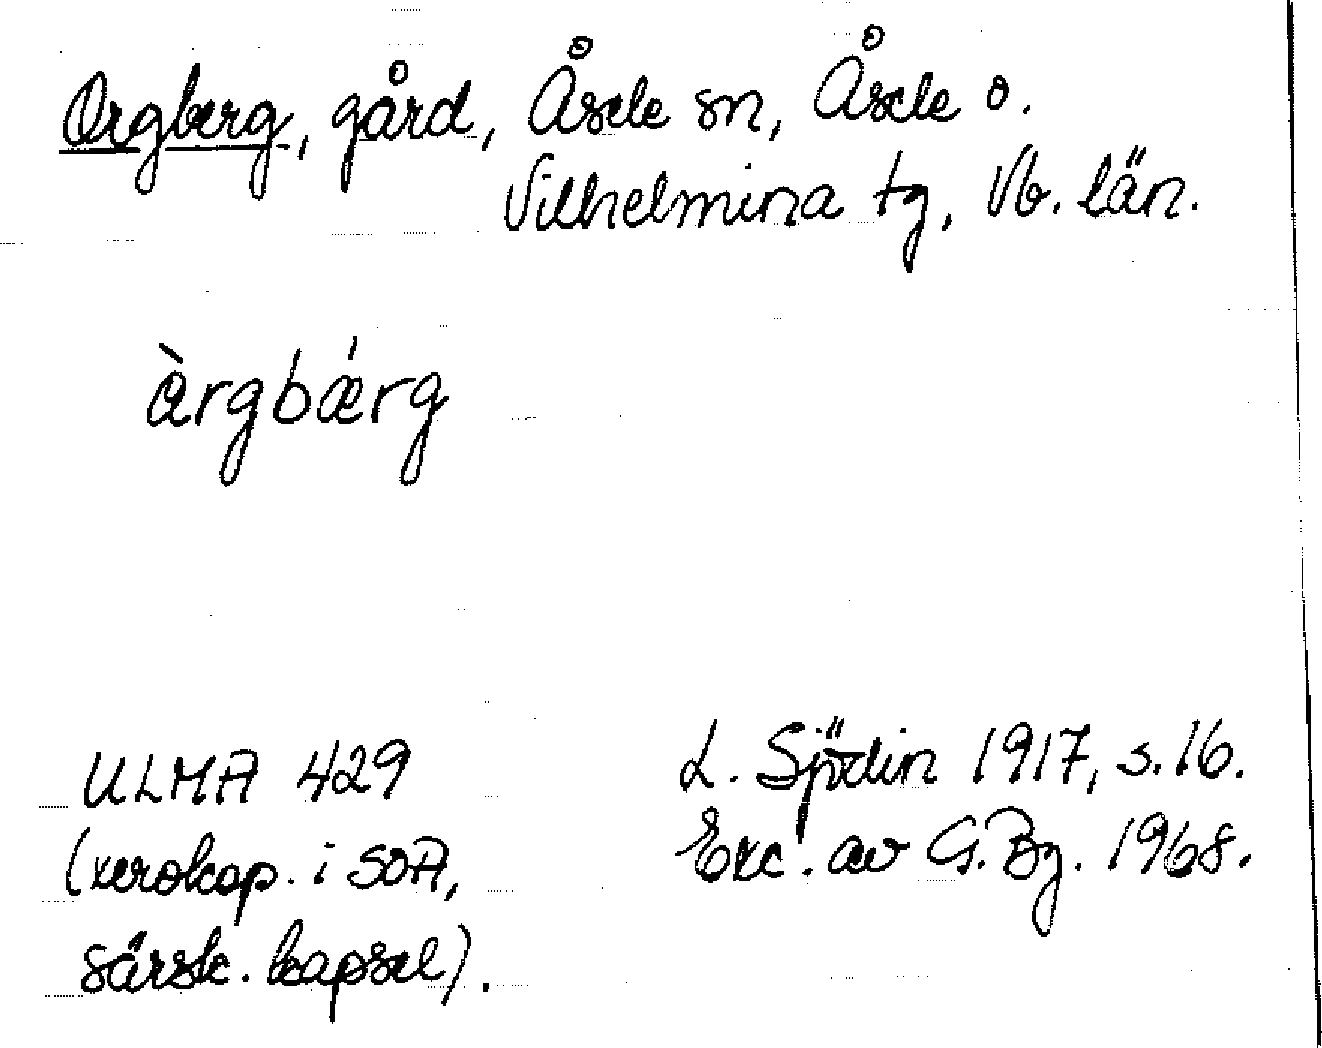 Orgberg, gård, Åsele sn, Åsele o.
Vilhelmina tg, Vb. län.
àrgbǽrg
ULMA 429
(xerokop. i SOA,
särsk. kapsel).
L. Sjödin 1917, s. 16.
Exc. av G. Bg. 1968.